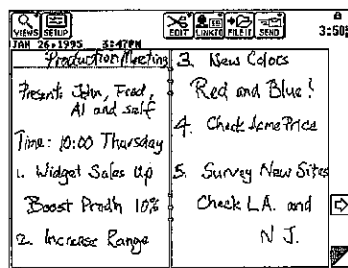 VIEWS SETUP EDIT LINKTO FILE IT SEND 3:50
JAN 26,1995 3:47PM
Production Meeting
Present: John, Fred,
Al and self
Time: 10:00 Thursday
1. Widget Sales Up
Boost Prodn 10%
2. Increase Range
3. New Colors
Red and Blue!
4. Check Acme Price
5. Survey New Sites
Check L.A. and
N J.